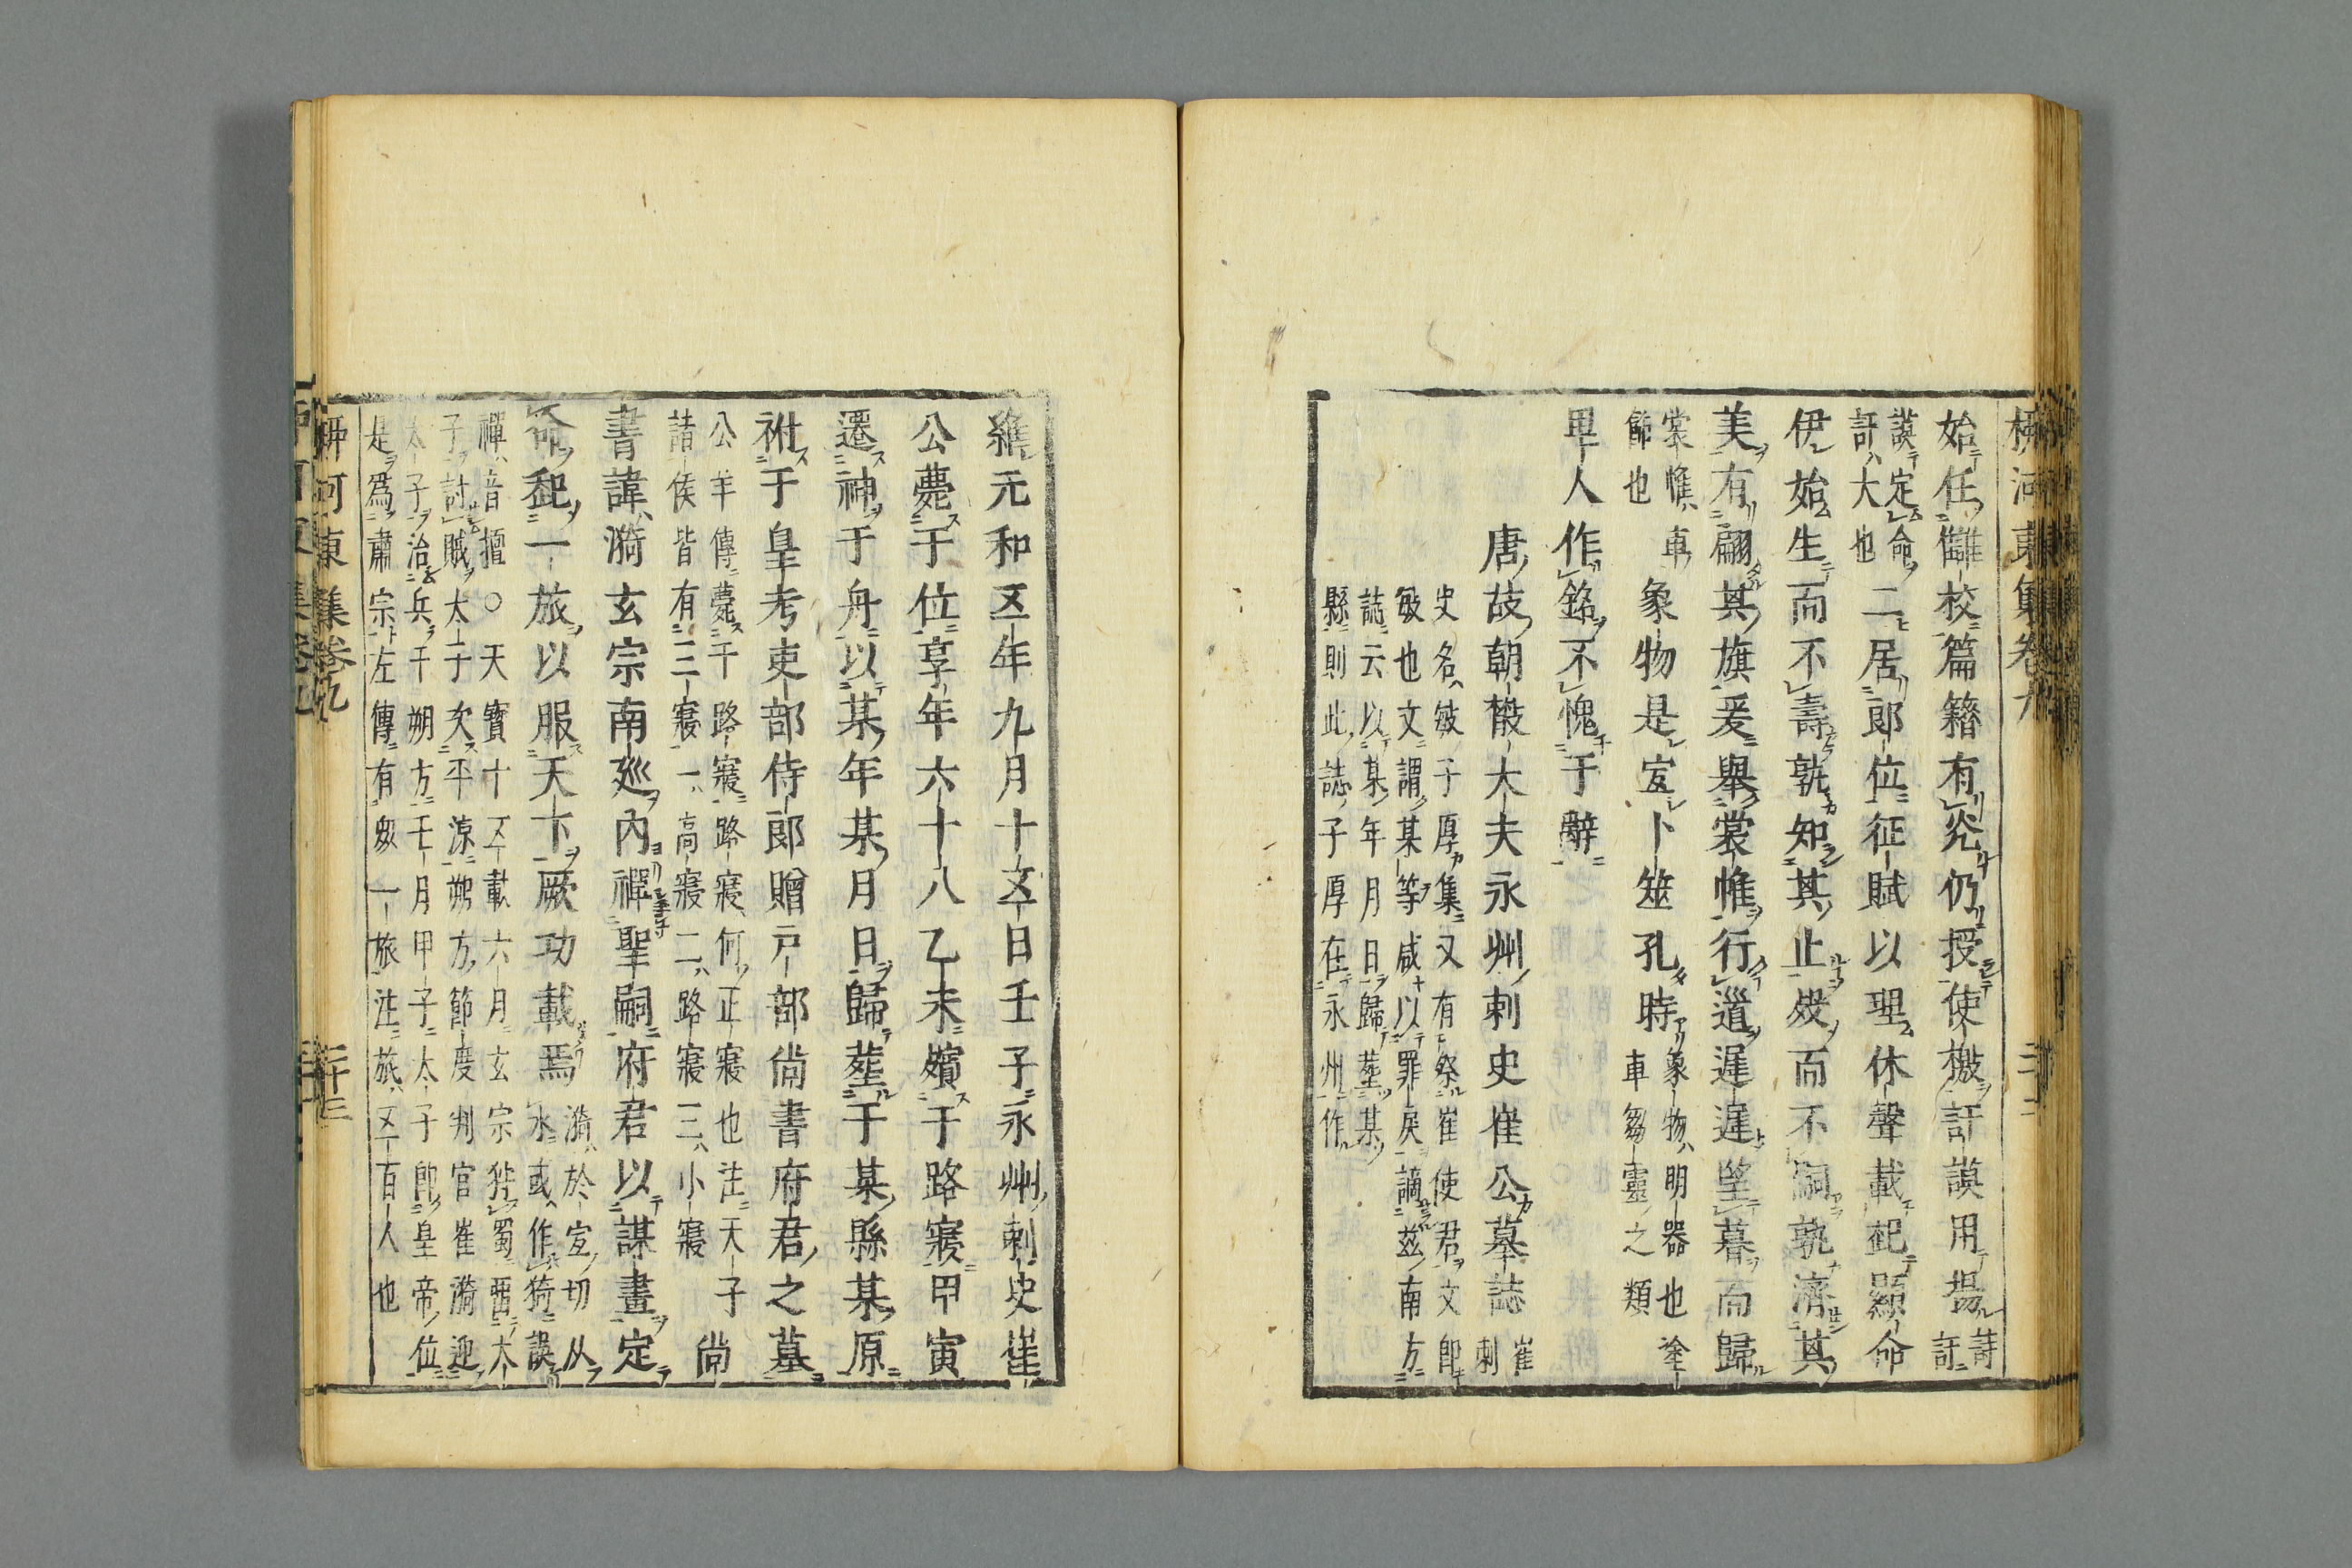 柳河東集卷九　二十二
始任讎校篇籍有究仍授使檄訏謨用揚詩訏
謨定命
訏大也
二居郎位征賦以理休聲載起顯命
伊始生而不壽孰知其止歿而不嗣孰濟其
美有翩其旗爰舉裳帷行道遲遲望暮而歸
裳帷車
節也
象物是宜卜筮孔時
象物明器也塗
車芻靈之類
里人作銘不愧于辭
唐故朝散大夫永州刺史崔公墓誌崔刺
史名敏子厚集又有祭崔使君文即
敏也文謂某等咸以罪戾謫茲南方
誌云以某年月日歸葬某
縣則此誌子厚在永州作
維元和五年九月十五日壬子永州刺史崔
公薨于位享年六十八乙未殯于路寢甲寅
遷神于舟以某年某月日歸葬于某縣某原
祔于皇考吏部侍郎贈戶部尚書府君之墓
公羊傳薨于路寢路寢何正寢也注天子
諸侯皆有三寢一高寢二路寢三小寢
尙
書諱漪玄宗南巡內禪聖嗣府君以謀畫定
命起一旅以服天下厥功載焉
漪於宜切从
水或作猗誤
禪音擅○天寶十五載六月玄宗狩蜀西太
子討賊太子次平涼朔方節度判官崔漪迎
太子治兵于朔方壬月甲子太子即皇帝位
是爲肅宗左傳有衆一旅注旅五百人也
柳河東集卷九　二十三